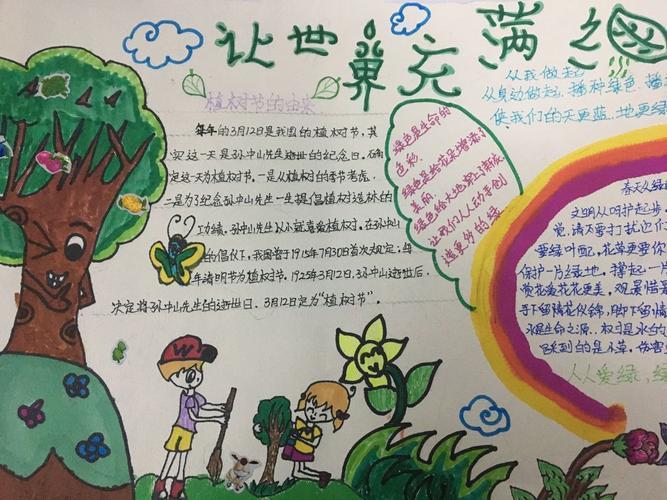 让世界充满
植树节的由来
每年的3月12日是我国的植树节,其
实这一天是孙中山先生逝世的纪念日。确
定这一天为植树节,一是从植树的季节考虑,
二是为了纪念孙中山先生一生提倡植树造林的
功绩,孙中山先生从小就喜爱植树。在孙中山
的倡仪下,我国曾于1915年7月30日首次规定:每
年清明节为植树节。1925年3月12日,孙中山逝世后,
决定将孙中山先生的逝世日、3月12日定为"植树节"。
绿色是生命的
色彩
绿色是给花朵增添了
美丽
绿色给大地带来了新衣
让我们人人动手创
造更多的绿
从我做起
从身边做起、播种绿色、播
使我们的天更蓝、地更绿
春天么绿
文明从呵护起步
觉,请不要打扰它们
爱绿叶配,花草更要你
保护一片绿地,撑起一片
赏花爱花花更美,观景惜景
手下留情花似锦,脚下留情
水是生命之源,权是水的
踩到的是小草,伤害
人人爱绿,绿
W